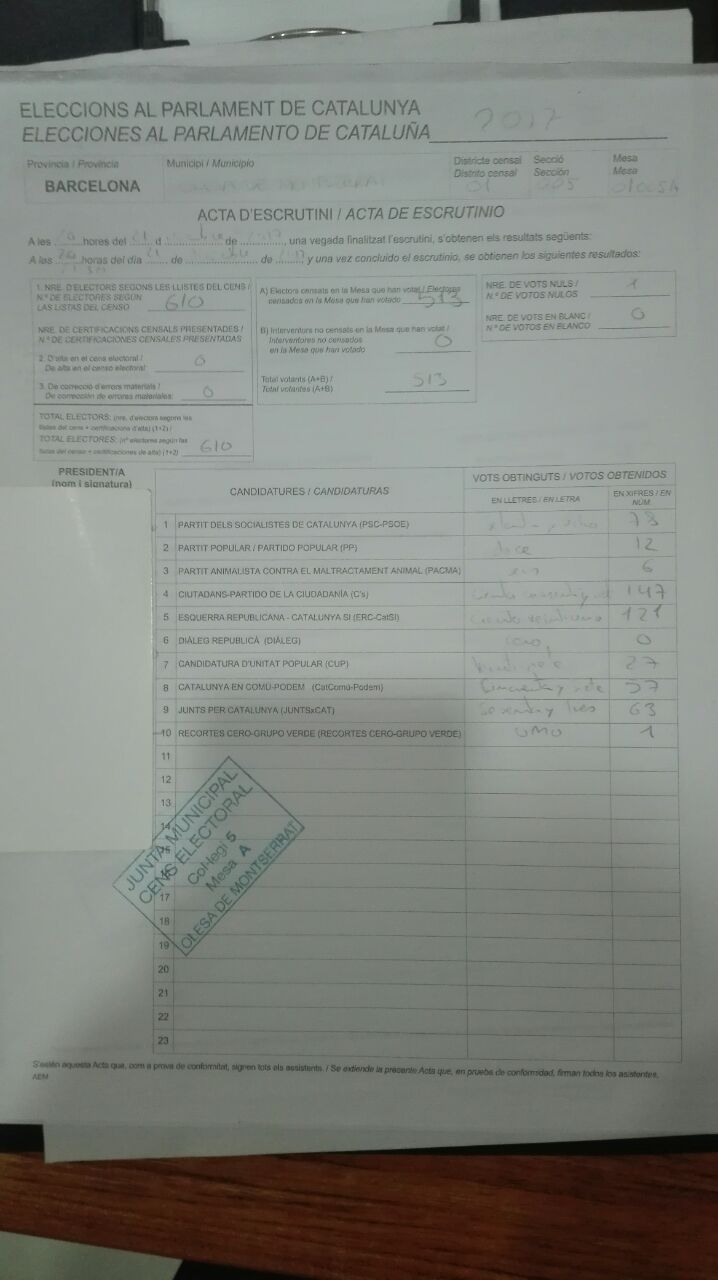 ELECCIONS AL PARLAMENT DE CATALUNYA
ELECCIONES AL PARLAMENTO DE CATALUÑA 2017
Provincia / Provincia
BARCELONA
Municipi / Municipio
OLESA DE MONTSERRAT
Districte censal
Distrito censal
01
Secció
Sección
005
Mesa
Mesa
ACTA D'ESCRUTINI / ACTA DE ESCRUTINIO
A les 20 hores del 21 d de , una vegada finalitzat l'escrutini, s'obtenen els resultats següents:
A las 20 horas del día 21 de de y una vez concluido el escrutinio, se obtienen los siguientes resultados:
1. NRE. D'ELECTORS SEGONS LES LLISTES DEL CENS /
N.º DE ELECTORES SEGÚN
LAS LISTAS DEL CENSO 610
NRE. DE CERTIFICACIONS CENSALS PRESENTADES /
N.º DE CERTIFICACIONES CENSALES PRESENTADAS
2. D'alta en el cens electoral /
De alta en el censo electoral: 0
3. De correcció d'errors materials /
De corrección de errores materiales: 0
TOTAL ELECTORS: (nre. d'electors segons les
llistes del cens + certificacions d'alta) (1+2) /
TOTAL ELECTORES: (nº electores según las
listas del censo + certificaciones de alta) (1+2) 610
A) Electors censats en la Mesa que han votat / Electores
censados en la Mesa que han votado 513
B) Interventors no censats en la Mesa que han votat /
Interventores no censados
en la Mesa que han votado 0
Total votants (A+B) /
Total votantes (A+B) 513
NRE. DE VOTS NULS /
N.º DE VOTOS NULOS 1
NRE. DE VOTS EN BLANC /
N.º DE VOTOS EN BLANCO 0
PRESIDENT/A
(nom i signatura)
CANDIDATURES / CANDIDATURAS
VOTS OBTINGUTS / VOTOS OBTENIDOS
EN LLETRES / EN LETRA
EN XIFRES / EN NÚM.
1 PARTIT DELS SOCIALISTES DE CATALUNYA (PSC-PSOE) 78
2 PARTIT POPULAR / PARTIDO POPULAR (PP) doce 12
3 PARTIT ANIMALISTA CONTRA EL MALTRACTAMENT ANIMAL (PACMA) seis 6
4 CIUTADANS-PARTIDO DE LA CIUDADANÍA (C's) 147
5 ESQUERRA REPUBLICANA - CATALUNYA SÍ (ERC-CatSí) 121
6 DIÀLEG REPUBLICÀ (DIÀLEG) cero 0
7 CANDIDATURA D'UNITAT POPULAR (CUP) 27
8 CATALUNYA EN COMÚ-PODEM (CatComú-Podem) Cincuenta y siete 57
9 JUNTS PER CATALUNYA (JUNTSxCAT) Sesenta y tres 63
10 RECORTES CERO-GRUPO VERDE (RECORTES CERO-GRUPO VERDE) UNO 1
11
12
13
14
15
16
17
18
19
20
21
22
23
JUNTA MUNICIPAL
CENS ELECTORAL
Col·legi 5
Mesa A
OLESA DE MONTSERRAT
S'estén aquesta Acta que, com a prova de conformitat, signen tots els assistents. / Se extiende la presente Acta que, en prueba de conformidad, firman todos los asistentes.
AEM